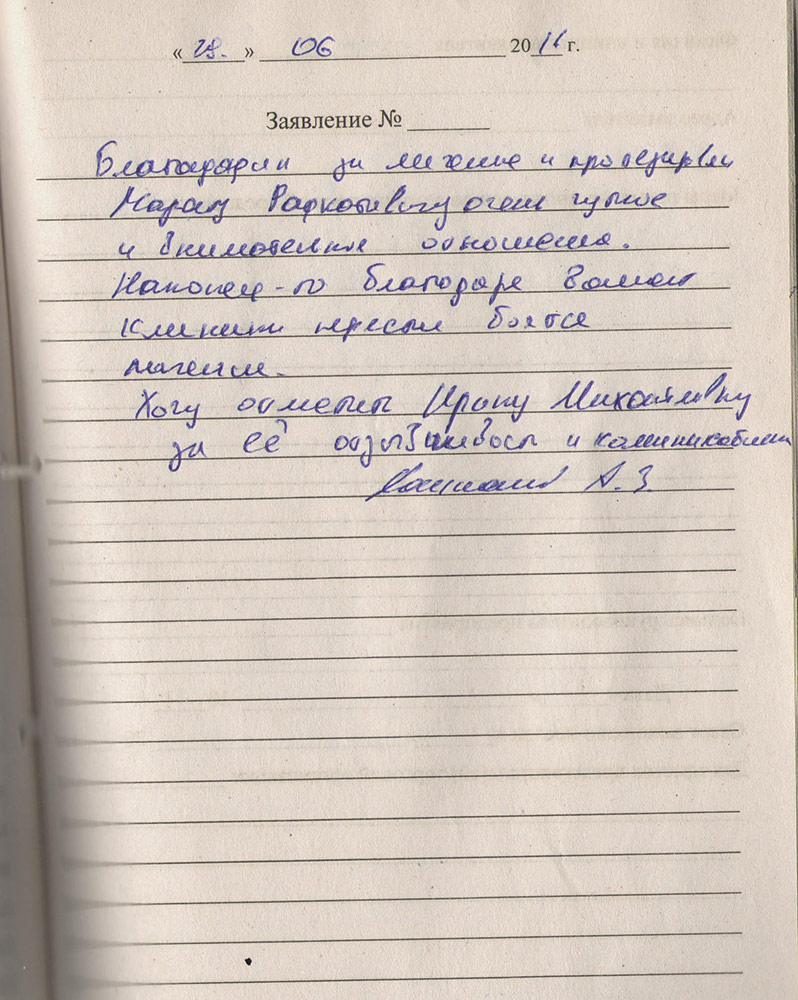 « 28. » 06 2016 г.
Заявление № ______
Благодарим за лечение и протезирован
Марату очень чуткое
и внимательное отношение.
Наконец-то благодаря вашей
клиники перестал бояться
лечения.
Хочу отметить Ирину Михайловну
за её отзывчивость и коммуникабельн
А. З.